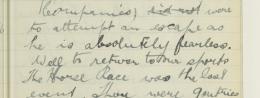 Companies) did not were
to attempt an escape as
he is absolutely fearless.
Well to return to our sports
The Horse Race was the last
event. There were